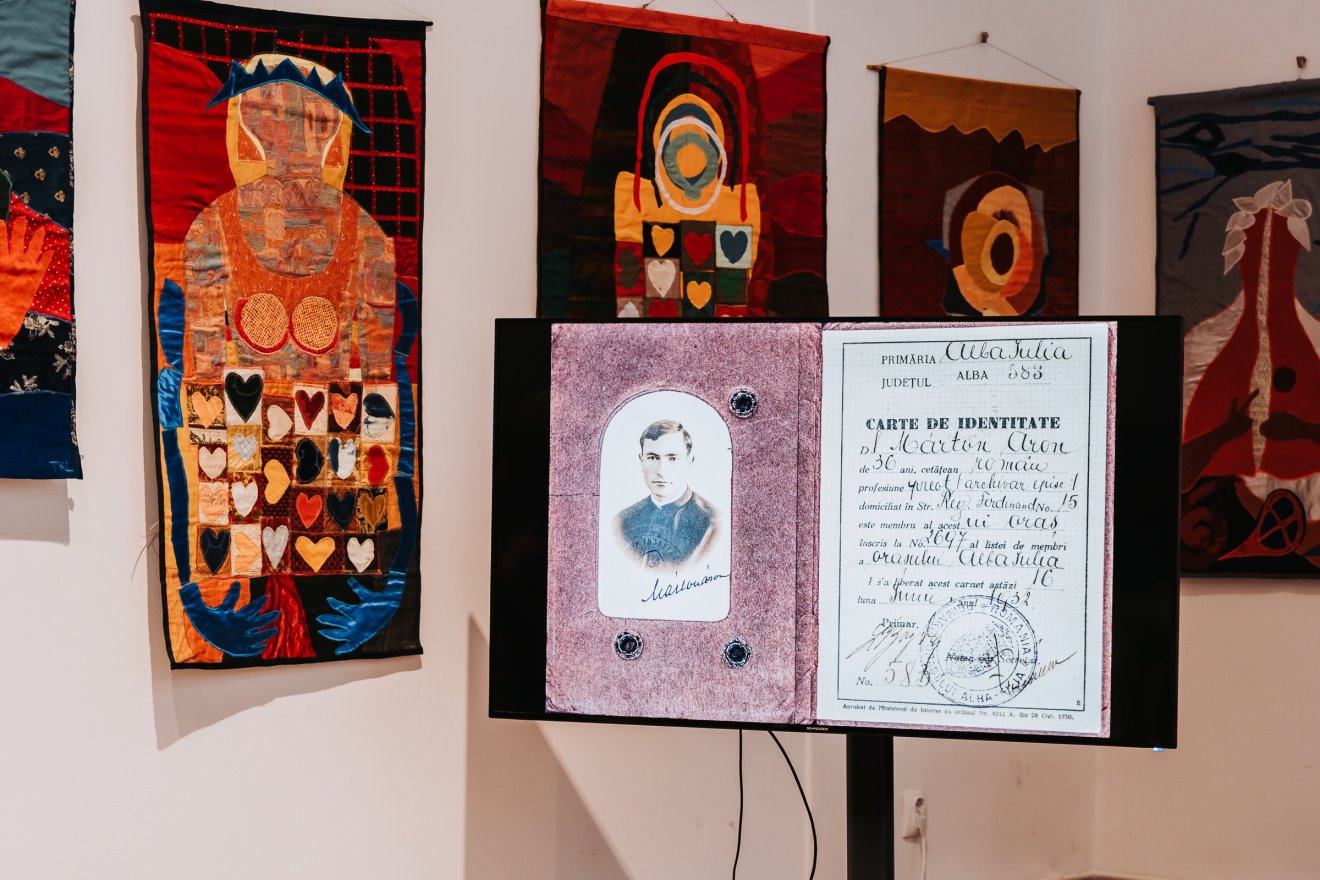 TKL
Mártonáron
PRIMĂRIA Alba Iulia
JUDEȚUL ALBA 583
CARTE DE IDENTITATE
Dl Márton Áron
de 36 ani, cetățean român
profesiune preot archivar episc.
domiciliat în Str. Reg. Ferdinand No. 15
este membru al acestui oraș
înscris la No. 2697 al listei de membri
a orașului Alba Iulia
I s'a liberat acest carnet astăzi 16
luna Iunie anul 1932
Primar,
Notar sau Secretar
No. 583
ROMÂNIA
ALBA-IULIA
8
Aprobat de Ministerul de Interne cu ordinul Nr. 8212 A. din 28 Oct. 1930.
SCHNEIDER